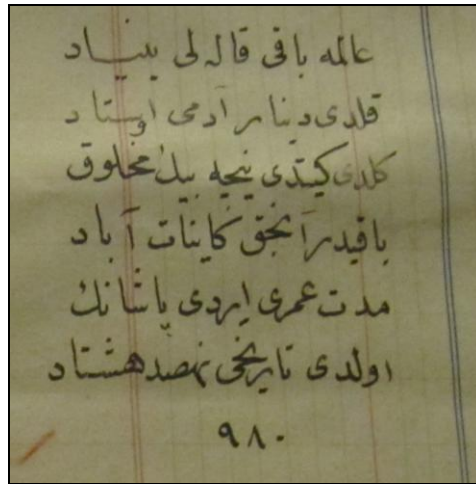 عالمه باقی قاله لی بنیاد
قلدی دینا بر آدمی اوستاد
کلدی کیتدی نیچه بیك مخلوق
باقیدر آنجق کاینات آباد
مدت عمری ایردی پاشانك
اولدی تاریخی نهصد هشتاد
٩٨٠